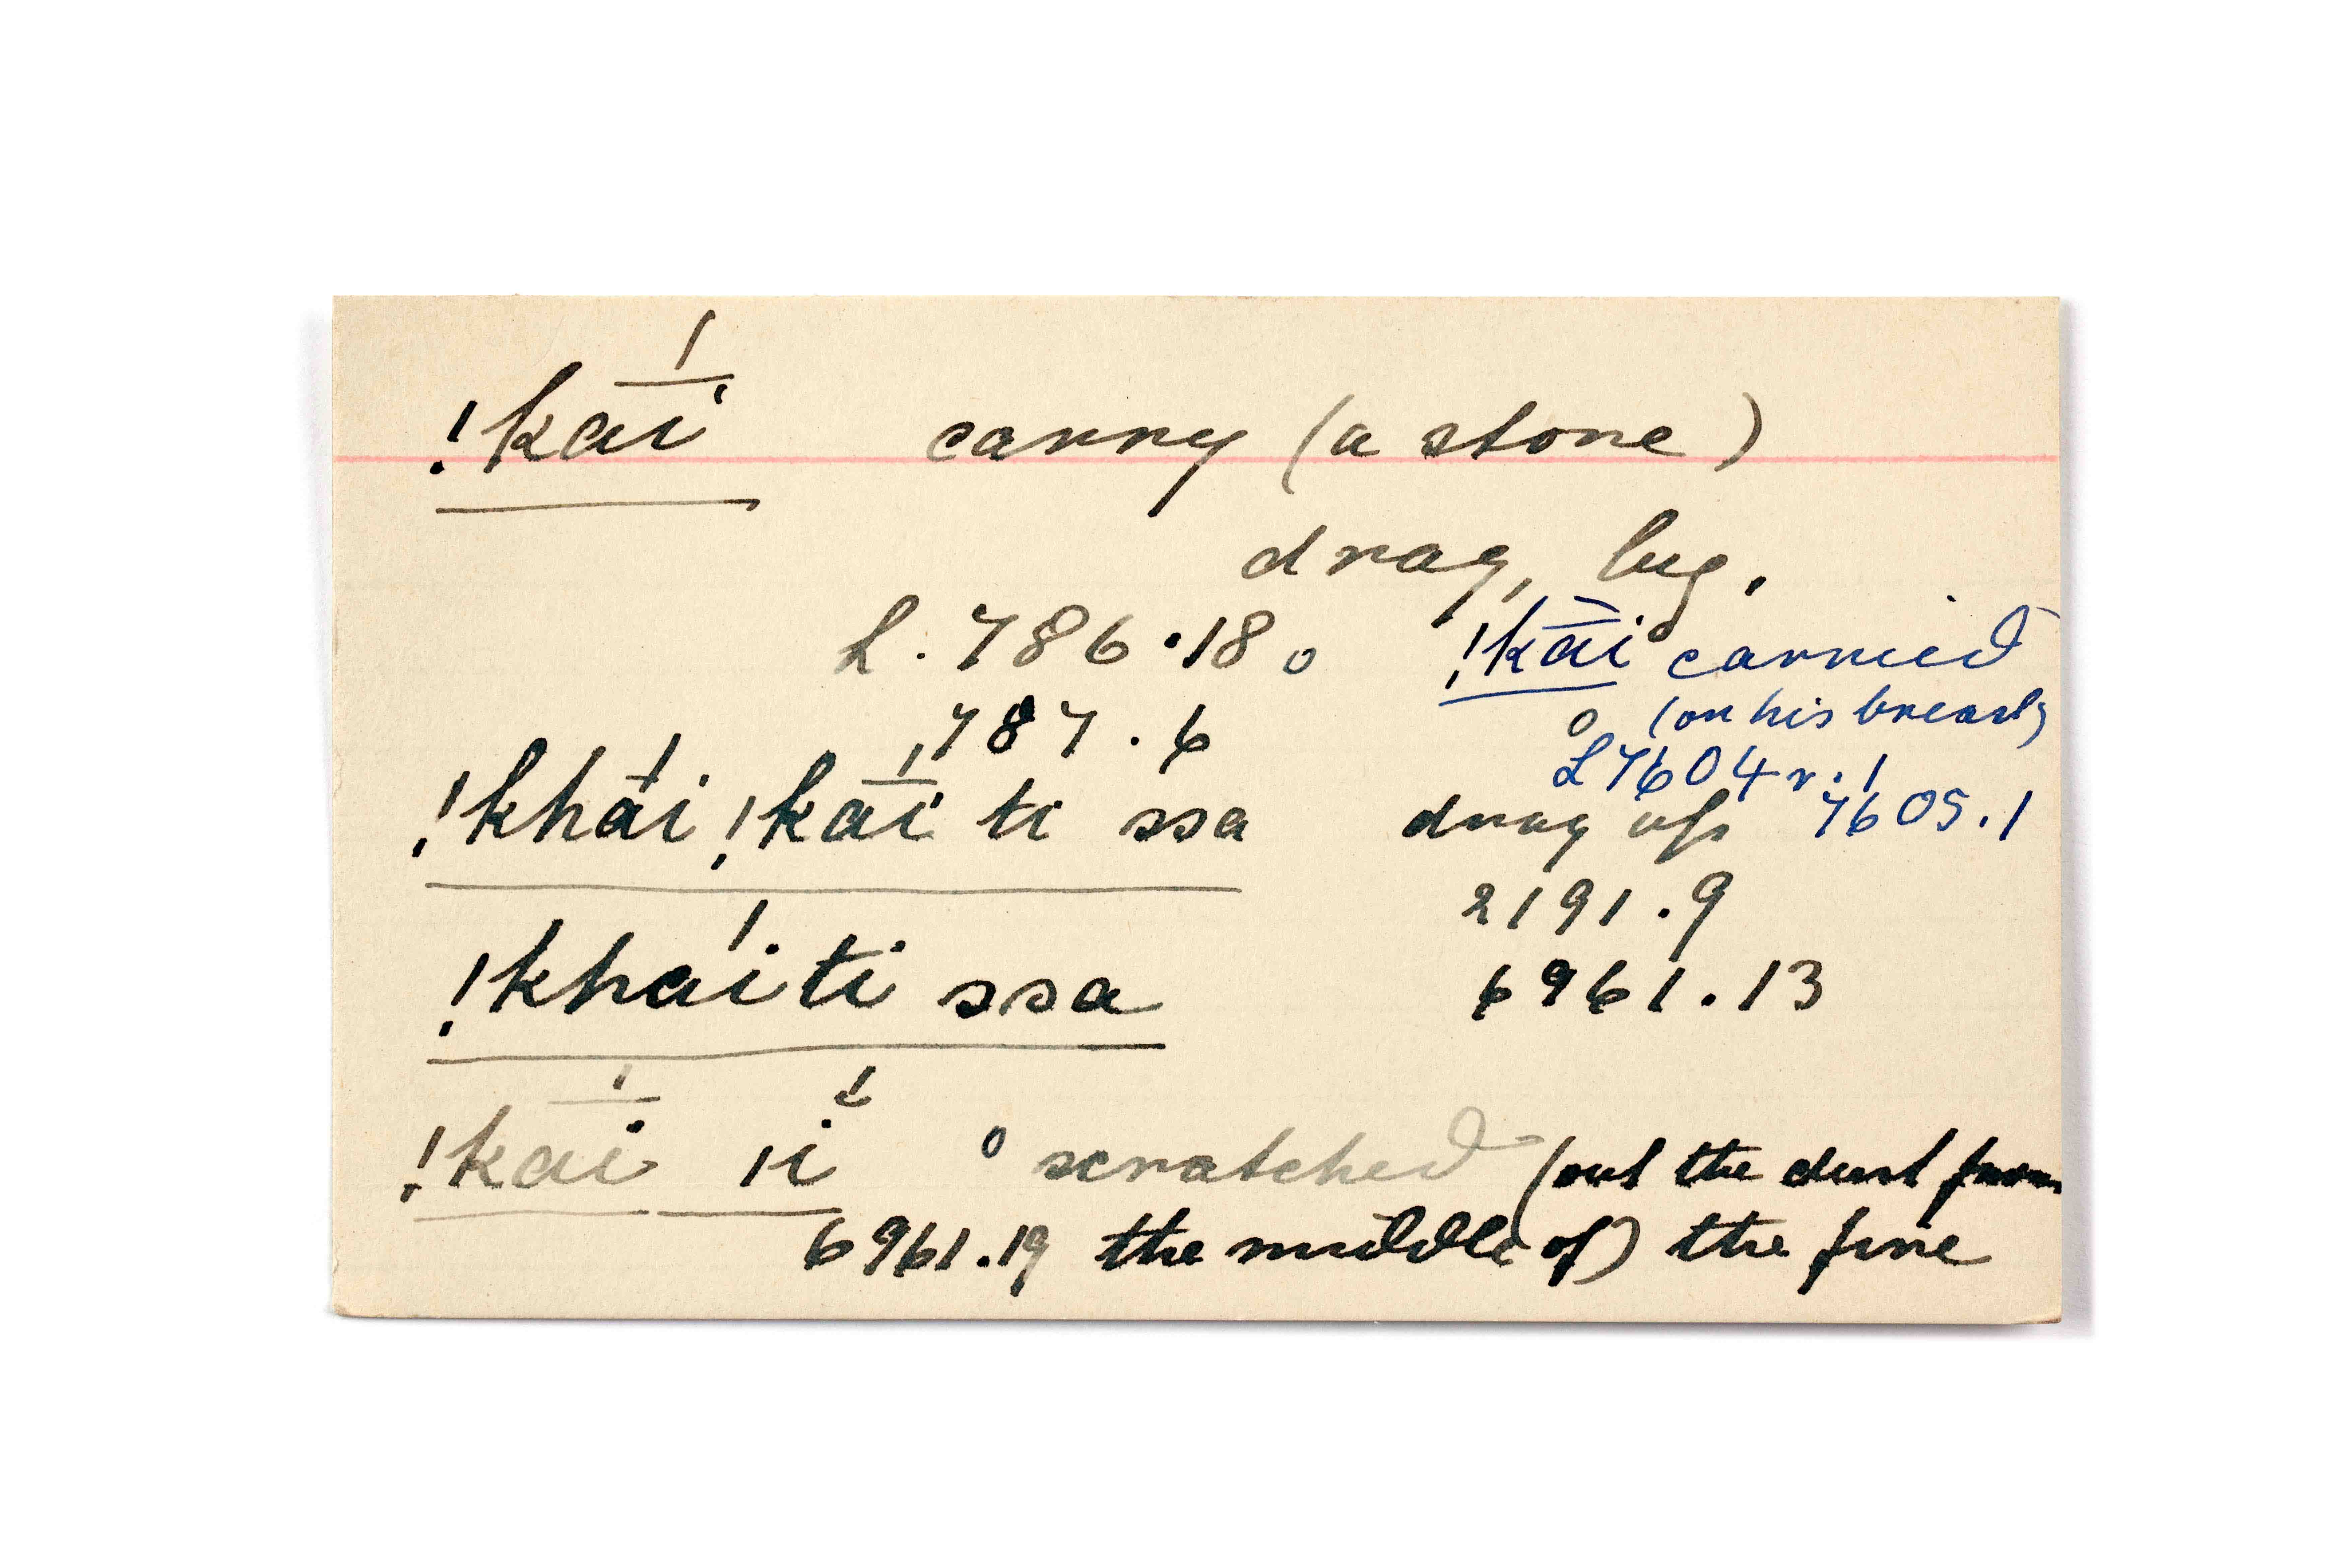 !kā́i carry (a stone)
drag, lug.
L. 786.18 o
!kāi carried
787.6
o (on his breast)
L 7604 r. 1
!khái !kā́i ti ssa drag up 7605.1
2191.9
!khaíti ssa 6961.13
!kā́i ıĭ́ o scratched (out the dust from
6961.19 the middle of) the fire